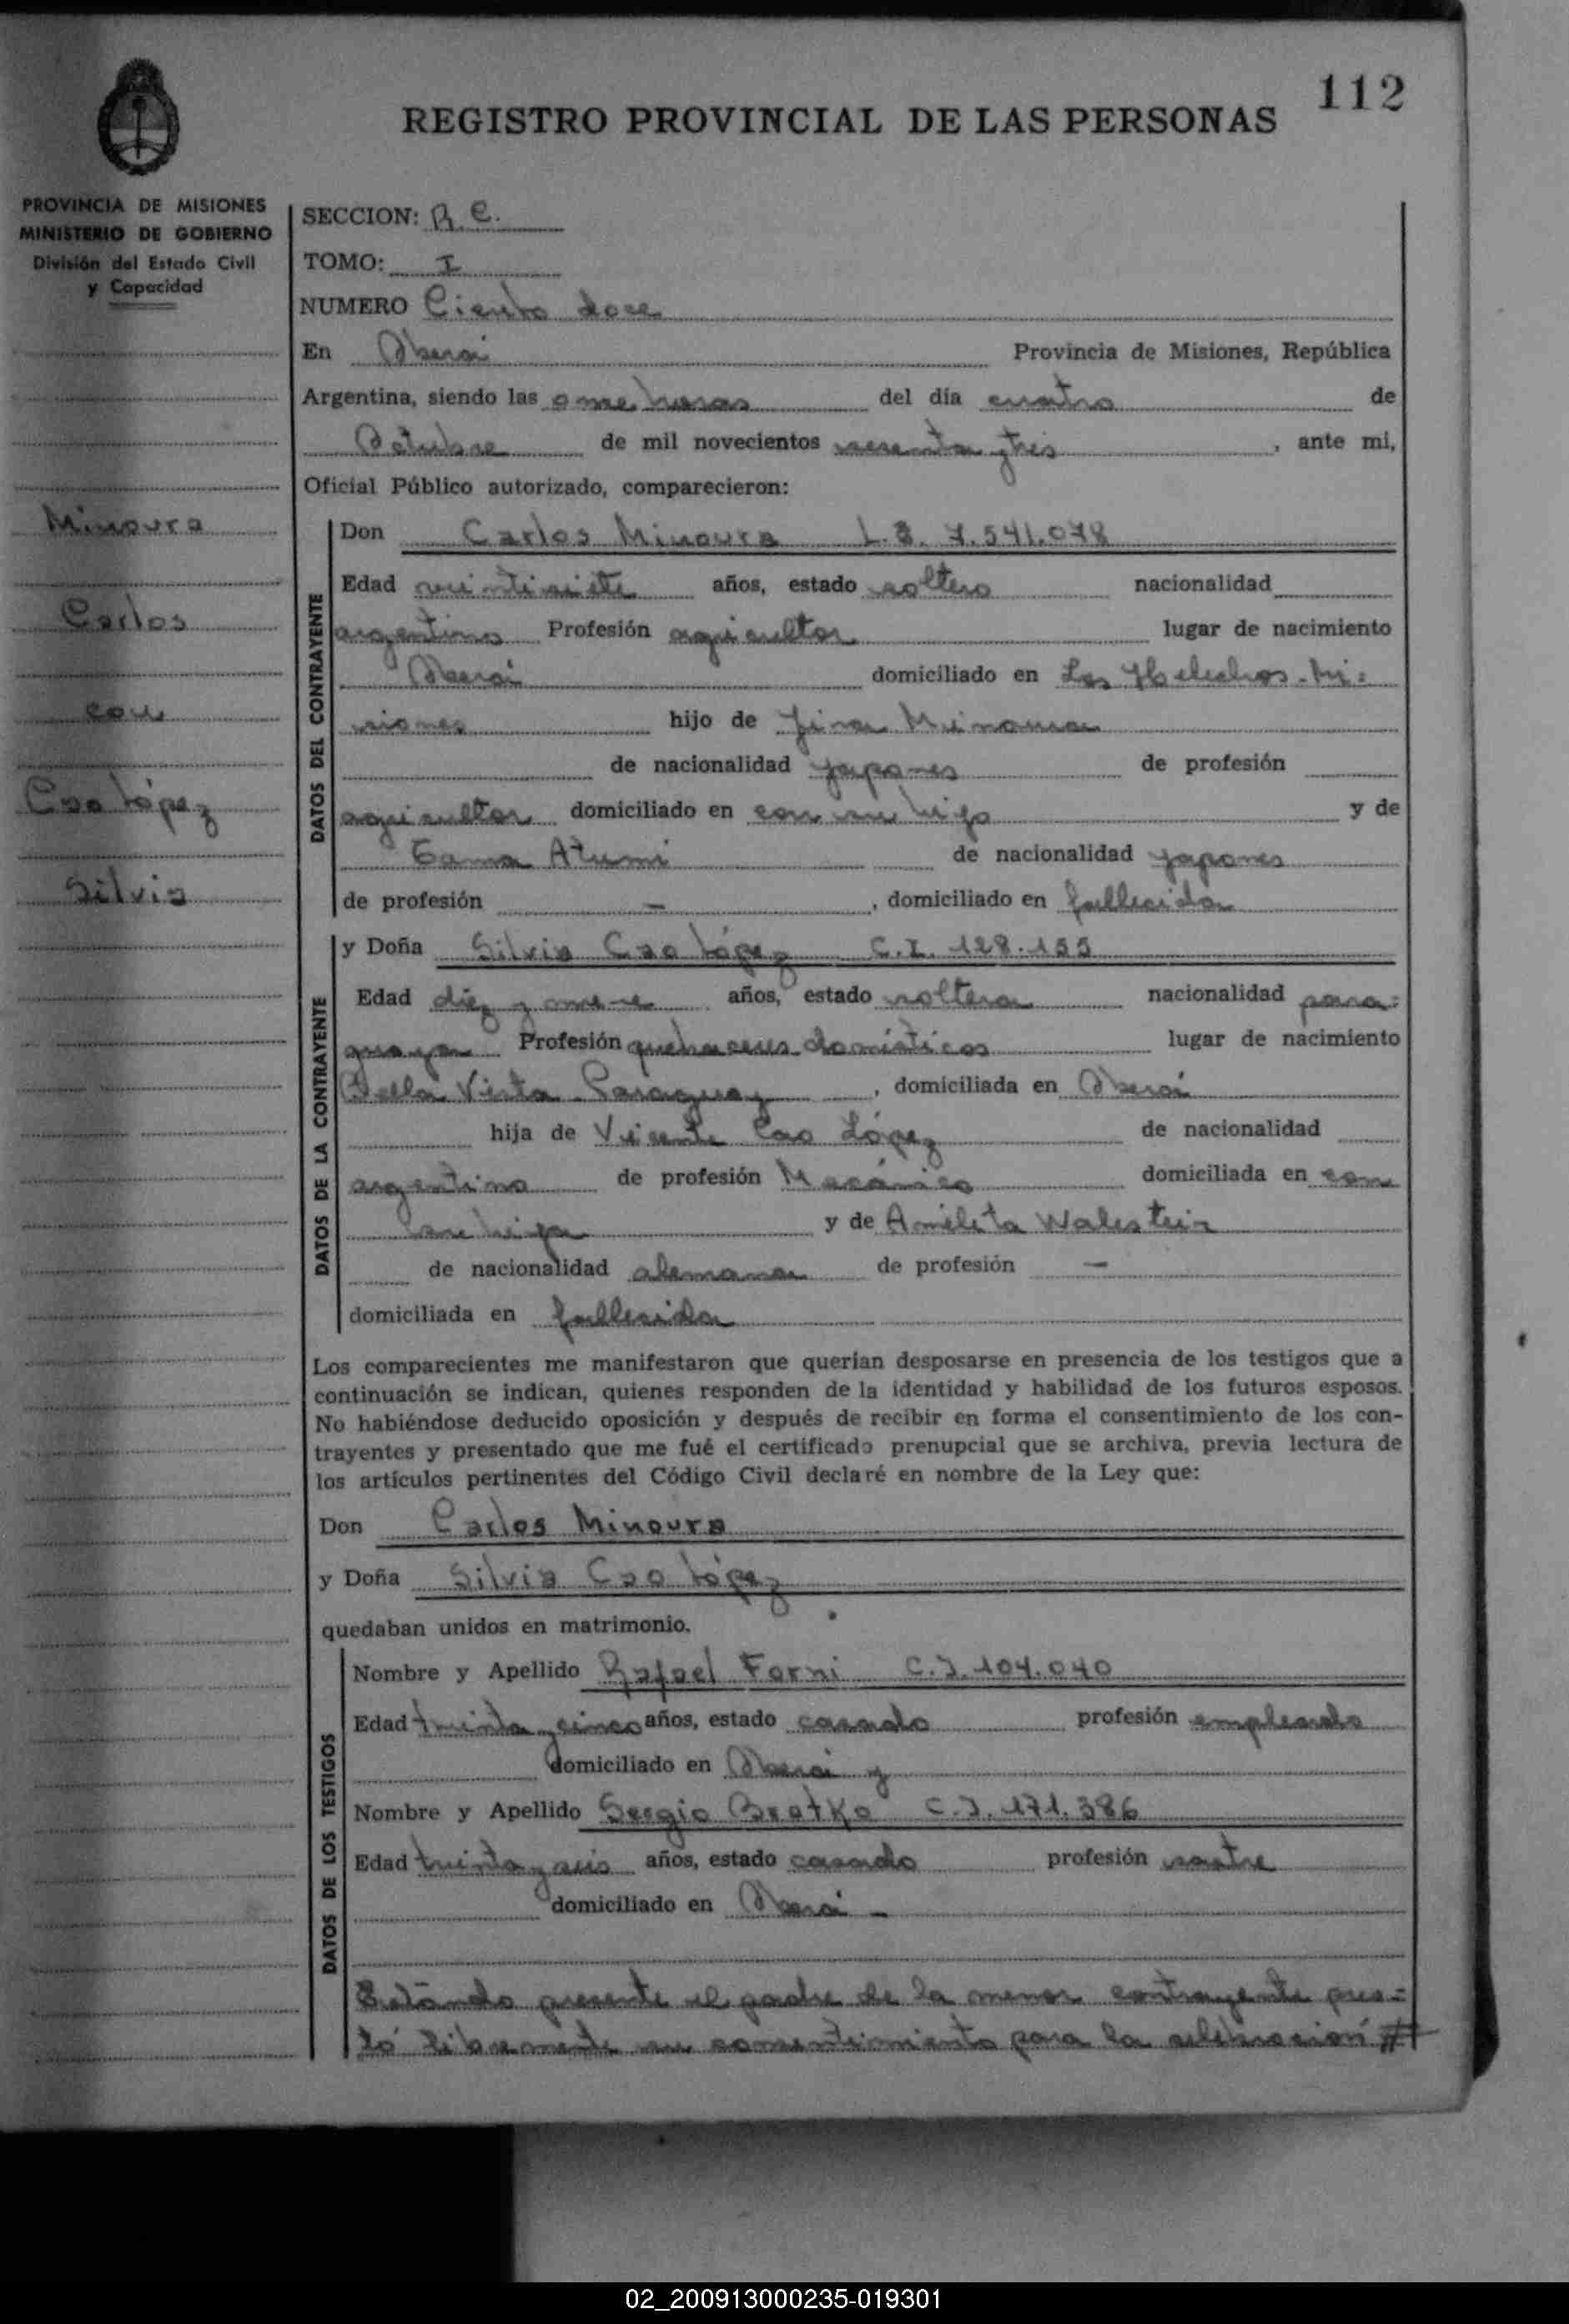 112
REGISTRO PROVINCIAL DE LAS PERSONAS
PROVINCIA DE MISIONES
MINISTERIO DE GOBIERNO
División del Estado Civil
y Capacidad
Minoura
Carlos
con
Cao López
Silvia
SECCION: R. C.
TOMO: I
NUMERO Ciento doce
En Oberá Provincia de Misiones, República
Argentina, siendo las once horas del día cuatro de
Octubre de mil novecientos sesenta y tres, ante mi,
Oficial Público autorizado, comparecieron:
DATOS DEL CONTRAYENTE
Don Carlos Minoura L.E. 7.541.078
Edad veintisiete años, estado soltero nacionalidad
argentino Profesión agricultor lugar de nacimiento
Oberá domiciliado en Los Helechos - Mi=
siones hijo de Minoura
de nacionalidad japones de profesión
agricultor domiciliado en con su hijo y de
Atumi de nacionalidad japones
de profesión -, domiciliado en fallecida
DATOS DE LA CONTRAYENTE
y Doña Silvia Cao López C.I. 128.155
Edad diez y nueve años, estado soltera nacionalidad para=
guaya Profesión quehaceres domésticos lugar de nacimiento
Bella Vista Paraguay, domiciliada en Oberá
hija de Vicente Cao López de nacionalidad
argentino de profesión Mecánico domiciliada en con
su hija y de Amelita Walestein
de nacionalidad alemana de profesión -
domiciliada en fallecida
Los comparecientes me manifestaron que querían desposarse en presencia de los testigos que a
continuación se indican, quienes responden de la identidad y habilidad de los futuros esposos.
No habiéndose deducido oposición y después de recibir en forma el consentimiento de los con-
trayentes y presentado que me fué el certificado prenupcial que se archiva, previa lectura de
los artículos pertinentes del Código Civil declaré en nombre de la Ley que:
Don Carlos Minoura
y Doña Silvia Cao López
quedaban unidos en matrimonio.
DATOS DE LOS TESTIGOS
Nombre y Apellido Rafael Forni C.I. 104.040
Edad treinta y cinco años, estado casado profesión empleado
domiciliado en Oberá y
Nombre y Apellido Sergio Bratko C.I. 171.386
Edad treinta y seis años, estado casado profesión sastre
domiciliado en Oberá -
Estando presente el padre de la menor contrayente pres=
tó libremente su consentimiento para la celebración #
02_200913000235-019301